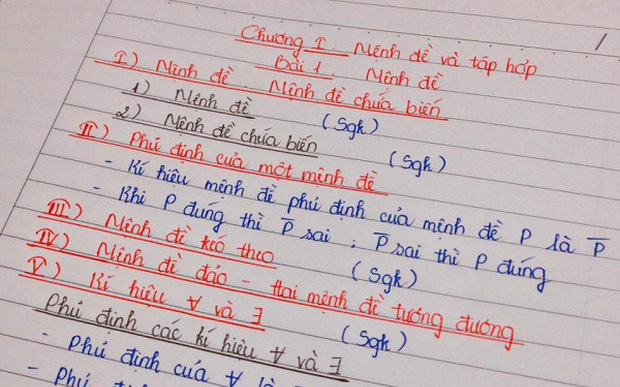 Chương I Mệnh đề và tập hợp
Bài 1 Mệnh đề
I) Mệnh đề. Mệnh đề chứa biến
1) Mệnh đề (Sgk)
2) Mệnh đề chứa biến (Sgk)
II) Phủ định của một mệnh đề
- Kí hiệu mệnh đề phủ định của mệnh đề P là P̅
- Khi P đúng thì P̅ sai ; P̅ sai thì P đúng
III) Mệnh đề kéo theo (Sgk)
IV) Mệnh đề đảo - Hai mệnh đề tương đương
V) Kí hiệu ∀ và ∃ (Sgk)
Phủ định các kí hiệu ∀ và ∃
- Phủ định của ∀ là
- Phủ